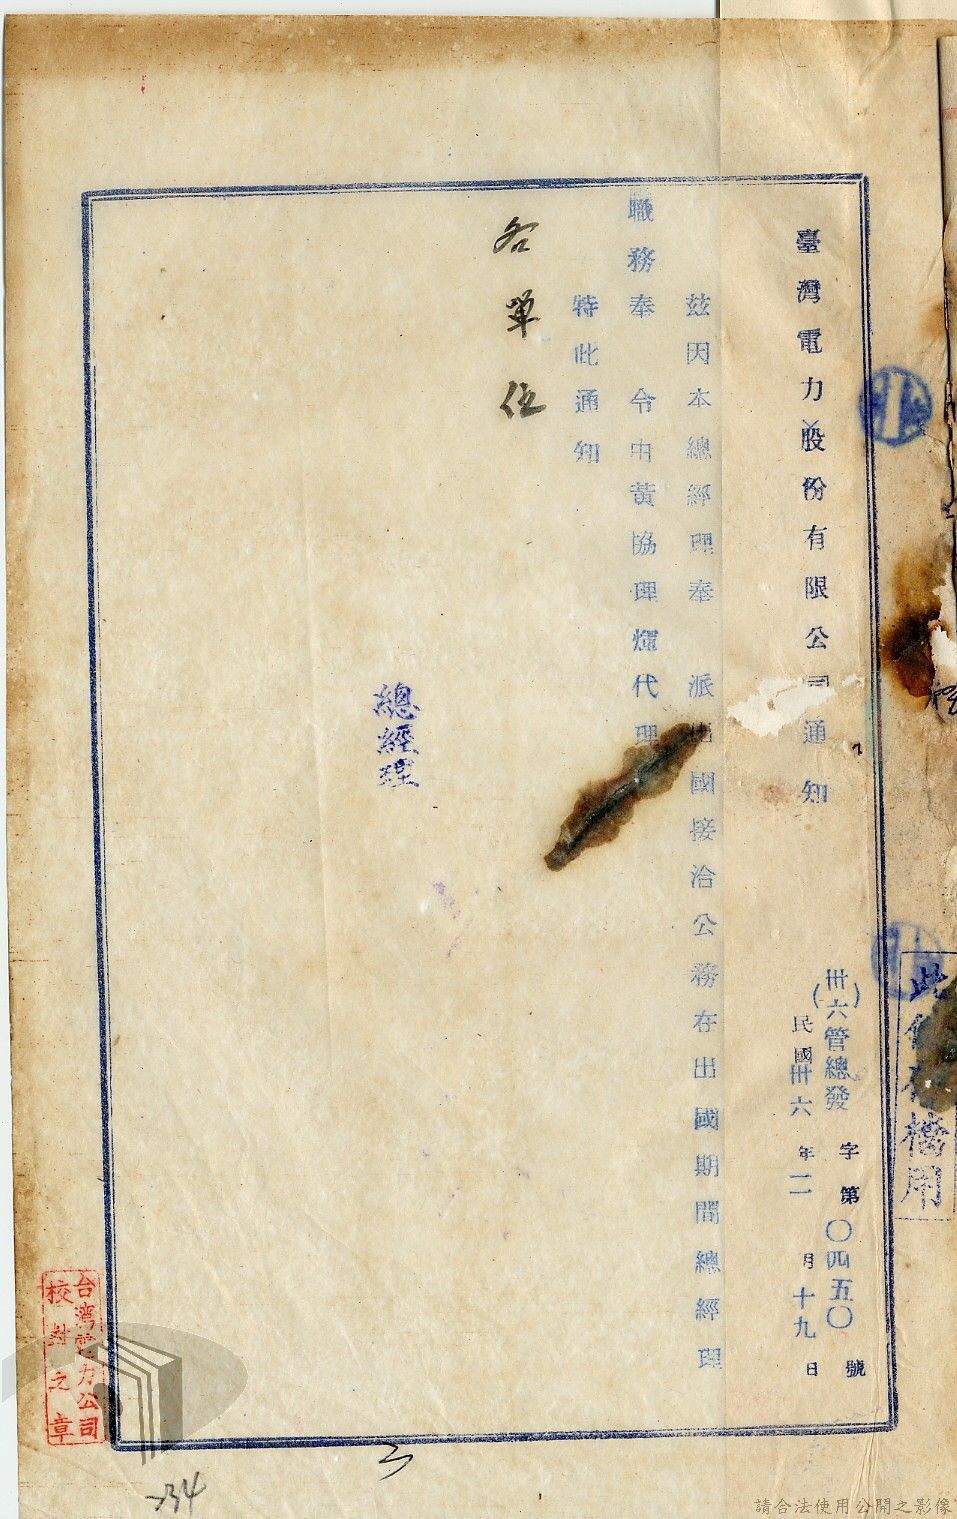 臺灣電力股份有限公司通知
(卅六)管總發字第〇四五〇號
民國卅六年二月十九日
茲因本總經理奉 派出國接洽公務在出國期間總經理
職務奉 令由黃協理煇代理
特此通知
各單位
總經理
台湾電力公司
校對之章
234
請合法使用公開之影像